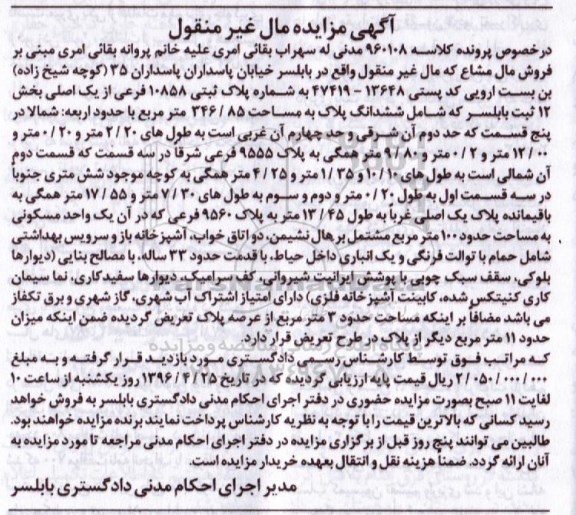 آگهی مزایده مال غیر منقول
درخصوص پرونده کلاسه ۹۶۰۱۰۸ مدنی له سهراب بقائی امری علیه خانم پروانه بقائی امری مبنی بر
فروش مال مشاع که مال غیر منقول واقع در بابلسر خیابان پاسداران پاسداران ۳۵ (کوچه شیخ زاده)
بن بست ارویی کد پستی ۱۳۶۴۸ - ۴۷۴۱۹ به شماره پلاک ثبتی ۱۰۸۵۸ فرعی از یک اصلی بخش
۱۲ ثبت بابلسر که شامل ششدانگ پلاک به مساحت ۸۵ / ۳۴۶ متر مربع با حدود اربعه: شمالا در
پنج قسمت که حد دوم آن شرقی وحد چهارم آن غربی است به طول های ۲۰ / ۲ متر و ۲۰ / ۰ متر و
۰۰ / ۱۲ متر و ۲ / ۰ متر و ۸۰ / ۷ متر همگی به پلاک ۹۵۵۵ فرعی شرقاً در سه قسمت که قسمت دوم
آن شمالی است به طول های ۱۰ / ۱۰ و ۳۵ / ۱ متر و ۲۵ / ۴ متر همگی به کوچه موجود شش متری جنوباً
در سه قسمت اول به طول ۲۰ / ۰ متر و دوم و سوم به طول های ۳۰ / ۷ متر و ۵۵ / ۱۷ متر همگی به
باقیمانده پلاک یک اصلی غرباً به طول ۴۵ / ۱۳ متر به پلاک ۹۵۶۰ فرعی که در آن یک واحد مسکونی
به مساحت حدود ۱۰۰ متر مربع مشتمل بر هال نشیمن، دو اتاق خواب، آشپزخانه باز و سرویس بهداشتی
شامل حمام با توالت فرنگی و یک انباری داخل حیاط، با قدمت حدود ۳۳ ساله، با مصالح بنایی (دیوارها
بلوکی، سقف سبک چوبی با پوشش ایرانیت شیروانی، کف سرامیک، دیوارها سفیدکاری، نما سیمان
کاری کنیتکس شده، کابینت آشپزخانه فلزی) دارای امتیاز اشتراک آب شهری، گاز شهری و برق تکفاز
می باشد مضافاً بر اینکه مساحت حدود ۳ متر مربع از عرصه پلاک تعریض گردیده ضمن اینکه میزان
حدود ۱۱ متر مربع دیگر از پلاک در طرح تعریض قرار دارد.
که مراتب فوق توسط کارشناس رسمی دادگستری مورد بازدید قرار گرفته و به مبلغ
۲/۰۵۰/۰۰۰/۰۰۰ ریال قیمت پایه ارزیابی گردیده که در تاریخ ۱۳۹۶/۴/۲۵ روز یکشنبه از ساعت ۱۰
لغایت ۱۱ صبح بصورت مزایده حضوری در دفتر اجرای احکام مدنی دادگستری بابلسر به فروش خواهد
رسید کسانی که بالاترین قیمت را با توجه به نظریه کارشناس پرداخت نمایند برنده مزایده خواهند بود.
طالبین می توانند پنج روز قبل از برگزاری مزایده در دفتر اجرای احکام مدنی مراجعه تا مورد مزایده به
آنان ارائه گردد. ضمنا هزینه نقل و انتقال بعهده خریدار مزایده است.
مدیر اجرای احکام مدنی دادگستری بابلسر